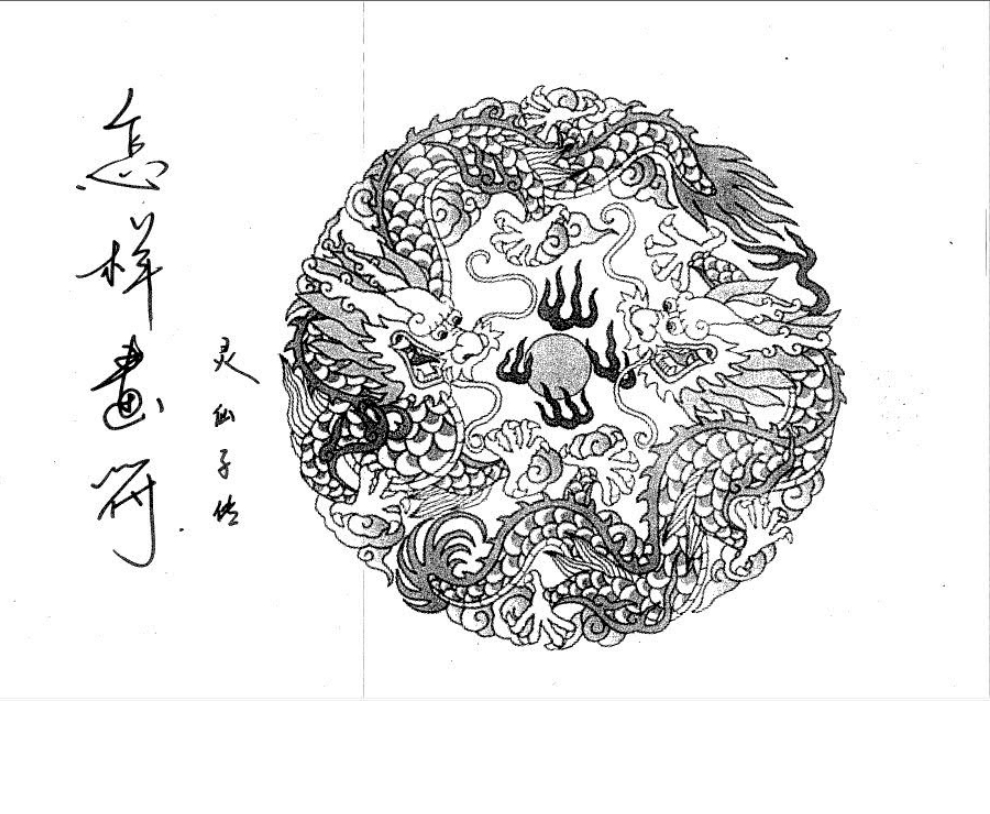 怎样畫符
灵仙子传